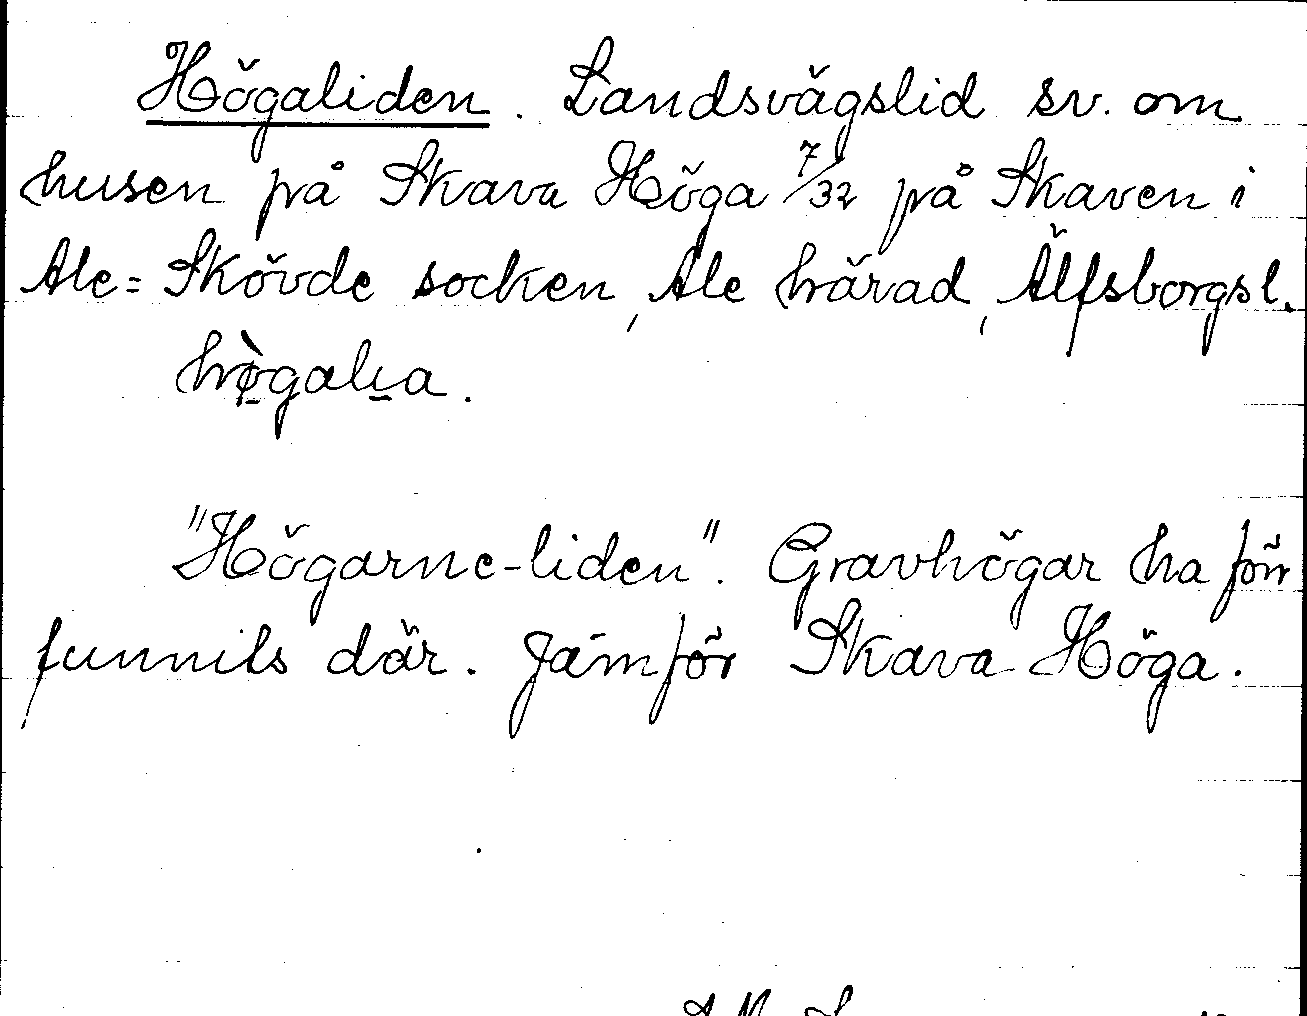 Högaliden. Landsvägslid sv. om
husen på Skava Höga 7/32 på Skaven i
Ale=Skövde socken, Ale härad, Älfsborgsl.
hø̀galia.
"Högarne-liden". Gravhögar ha förr
funnits där. Jämför Skava Höga.